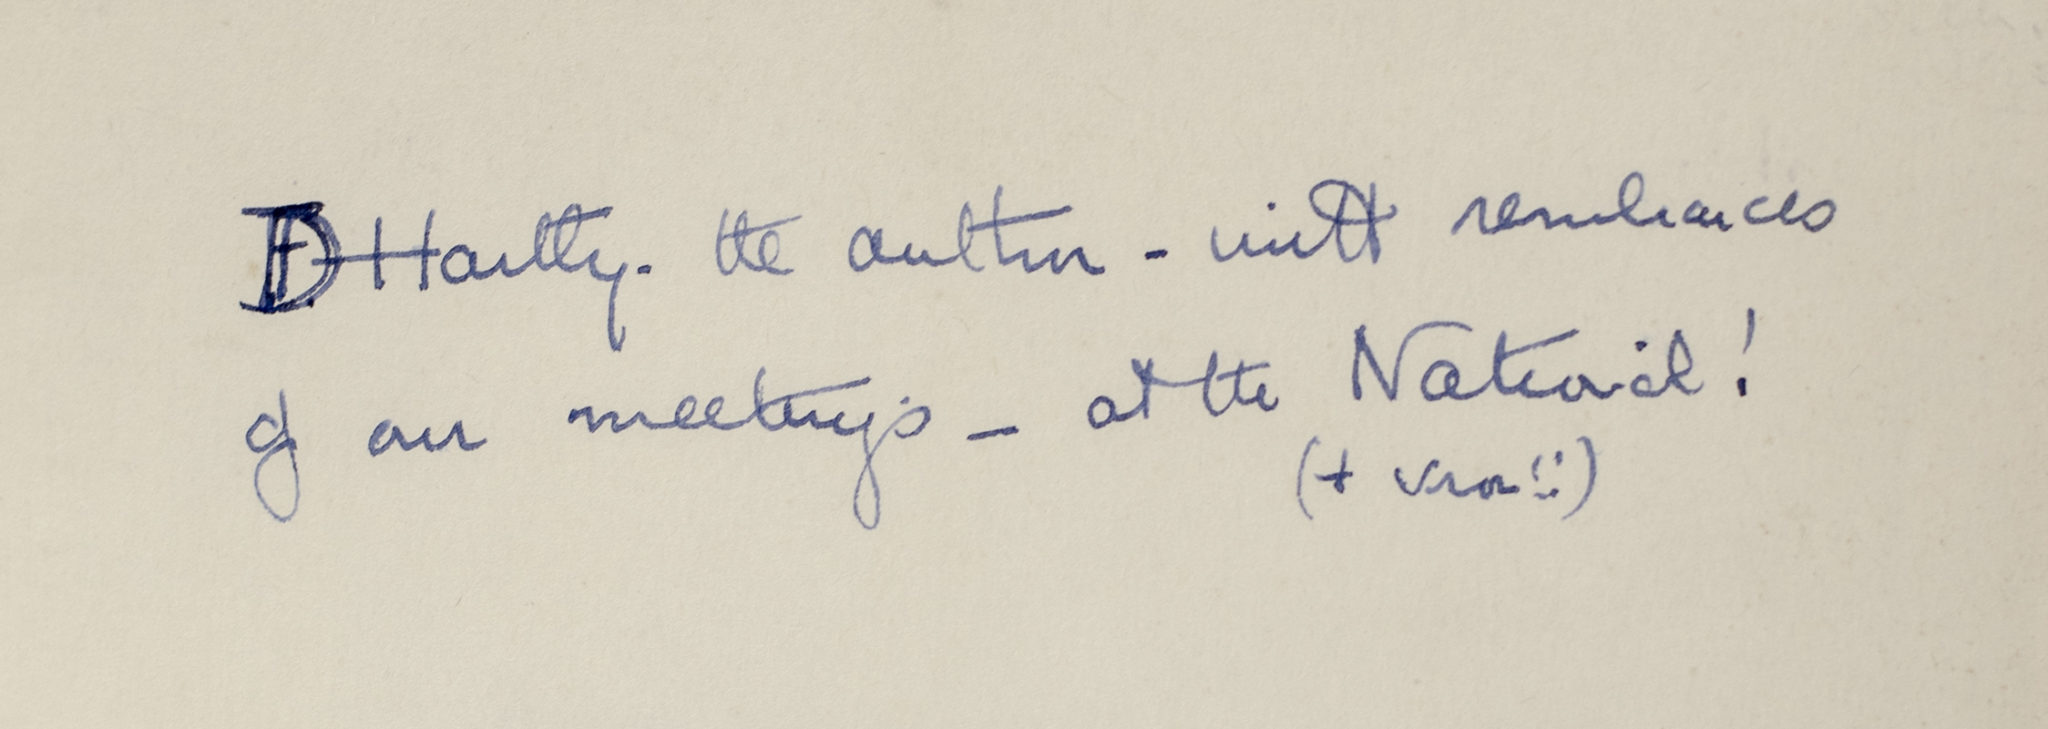 D Hartley. the author - with remembrances
of our meetings - at the National!
(+ vron!!)